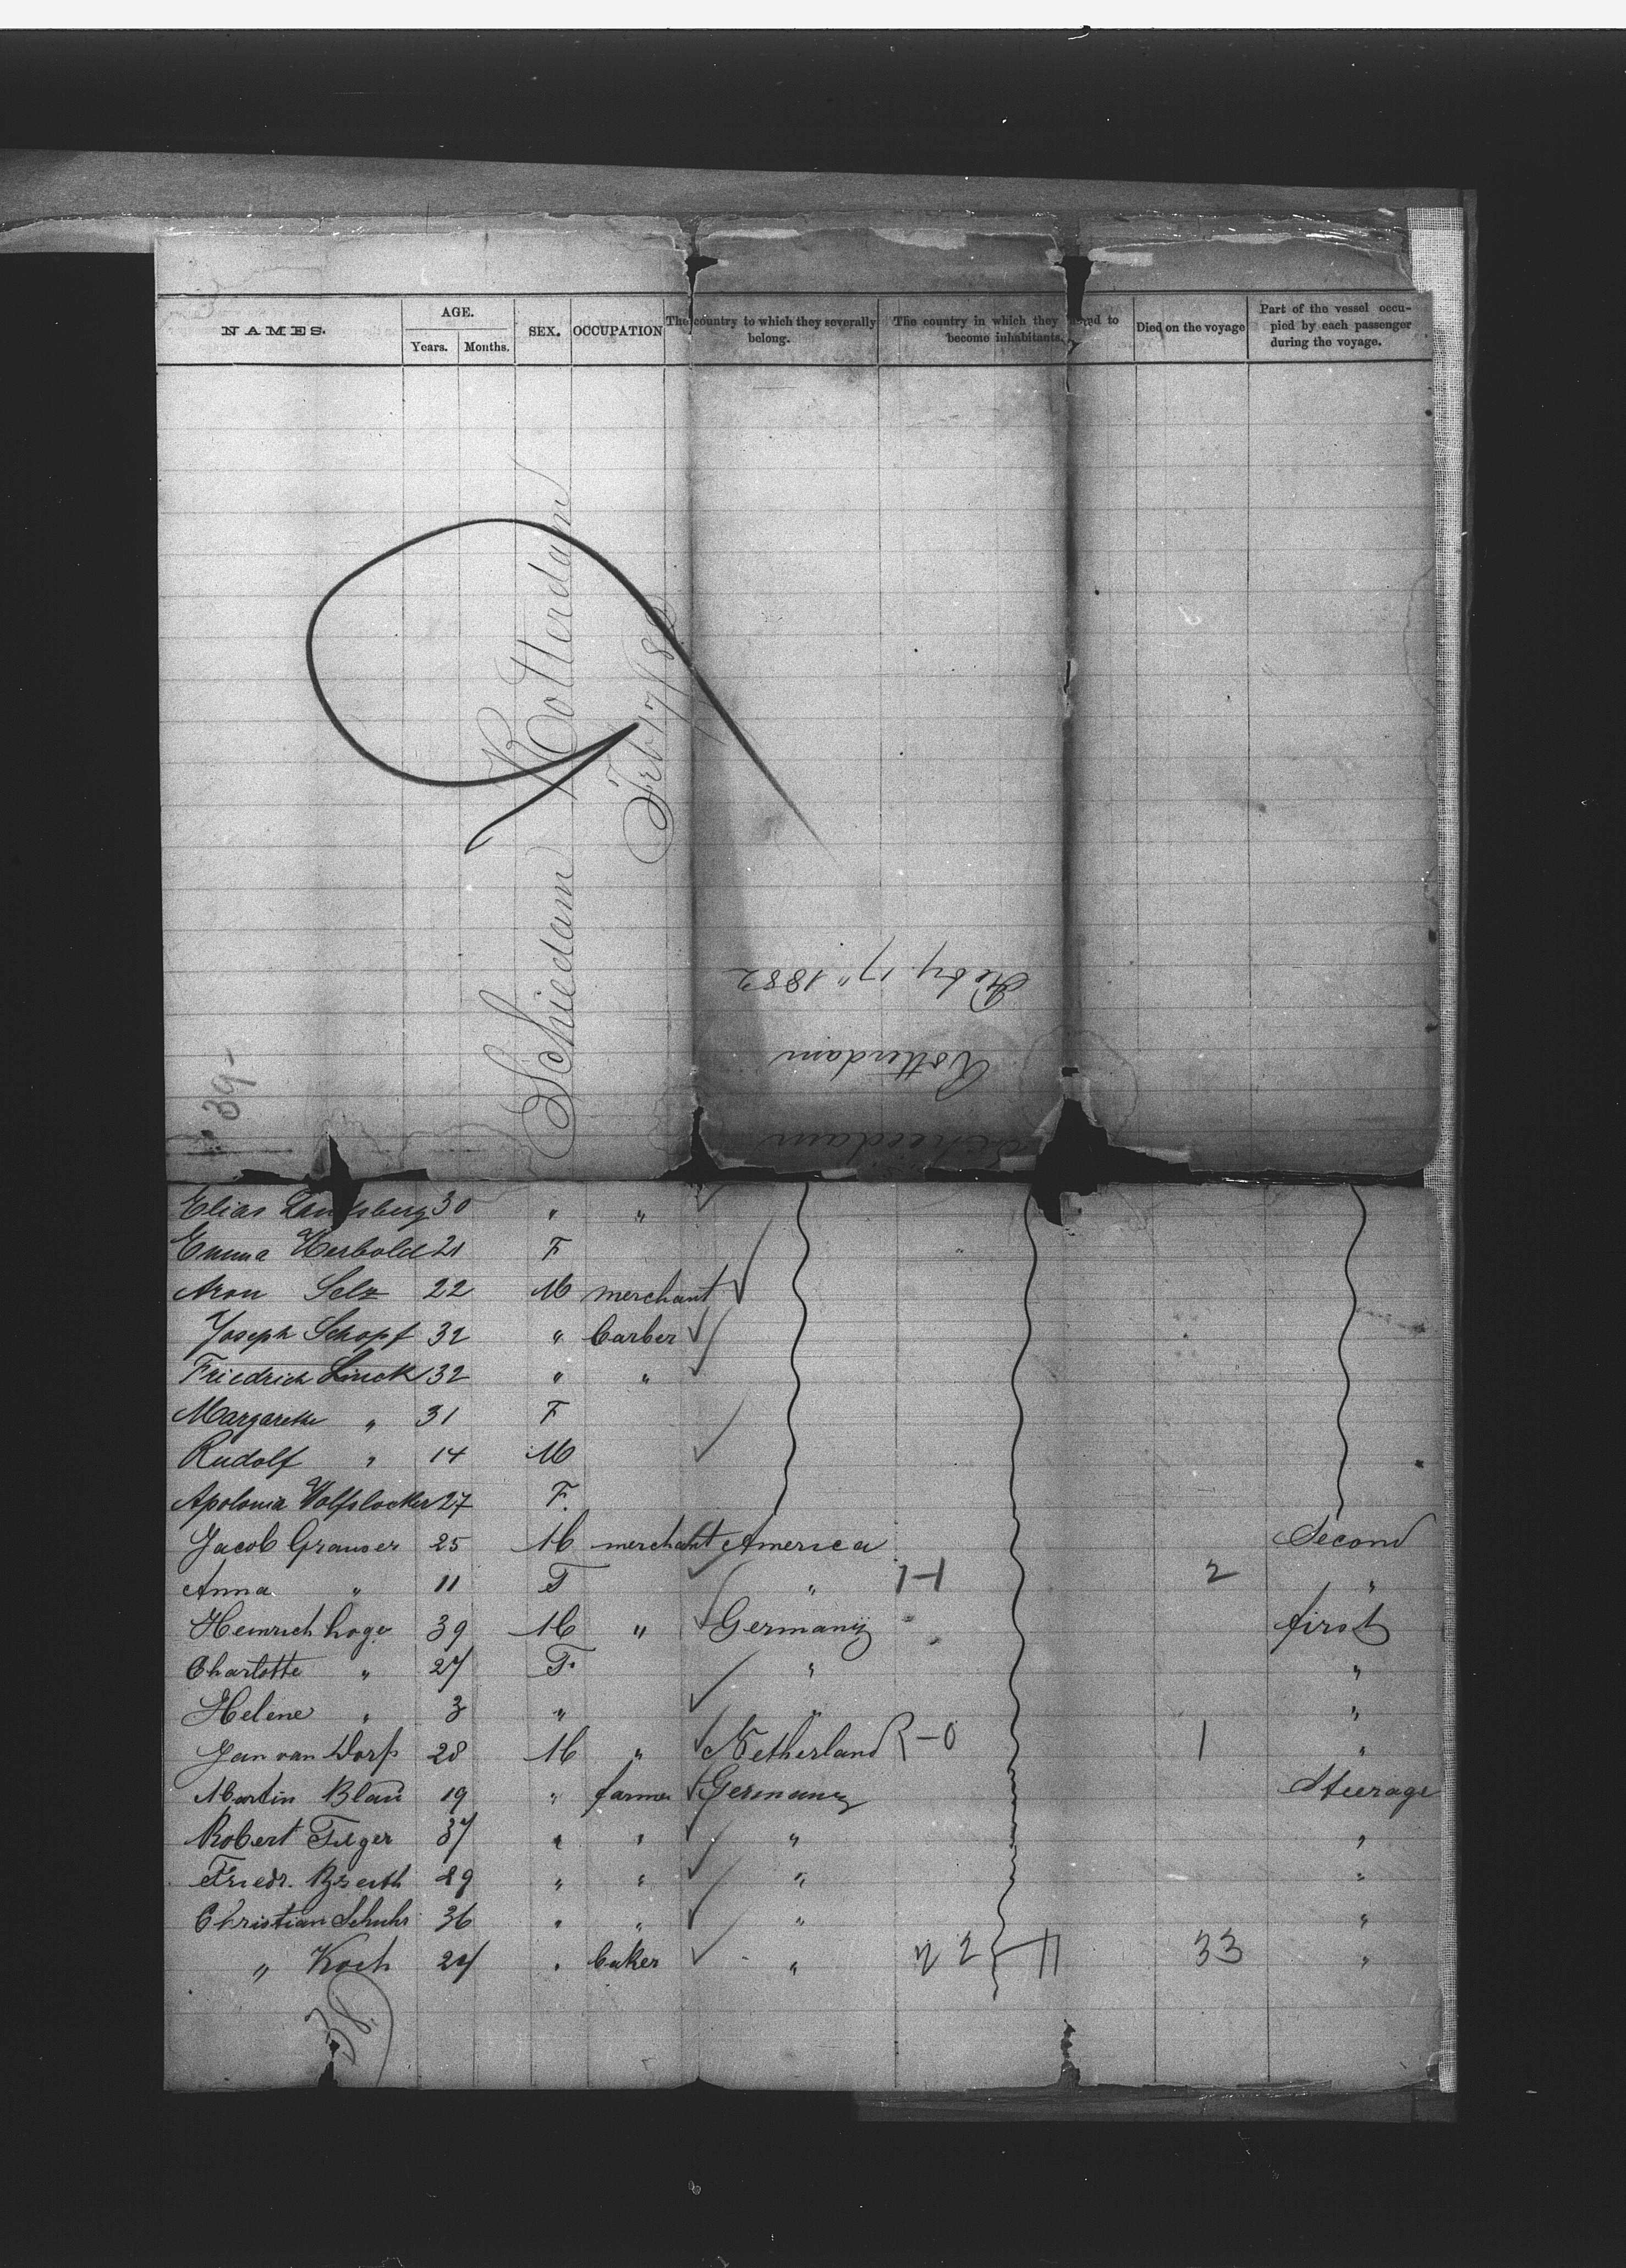 NAMES. AGE. SEX. OCCUPATION The country to which they severally belong. The country in which they to become inhabitants. Died on the voyage Part of the vessel occupied by each passenger during the voyage.
Years. Months.
Schiedam Rotterdam
Feb 17/82
Feby 17" 1882
Rotterdam
Schiedam
39-
Elias 30 " "
Emma Herbold 21 F
Aron Selz 22 M merchant
Joseph Schopf 32 " barber
Friedrich Linck 32 " "
Margarethe " 31 F
Rudolf " 14 M
Apolonia 27 F.
Jacob Grauser 25 M merchant America Second
Anna " 11 F " 1-1 2 "
Heinrich 39 M " Germany first
Charlotte " 27 F. " "
Helene " 3 " " "
Jan van Dorp 28 M " Netherland -0 1 "
Martin Blau 19 " farmer Germany Steerage
Robert 37 " " " "
Friedr. " " " "
Christian 36 " " " "
" Koch 24 " baker " 22-11 33 "